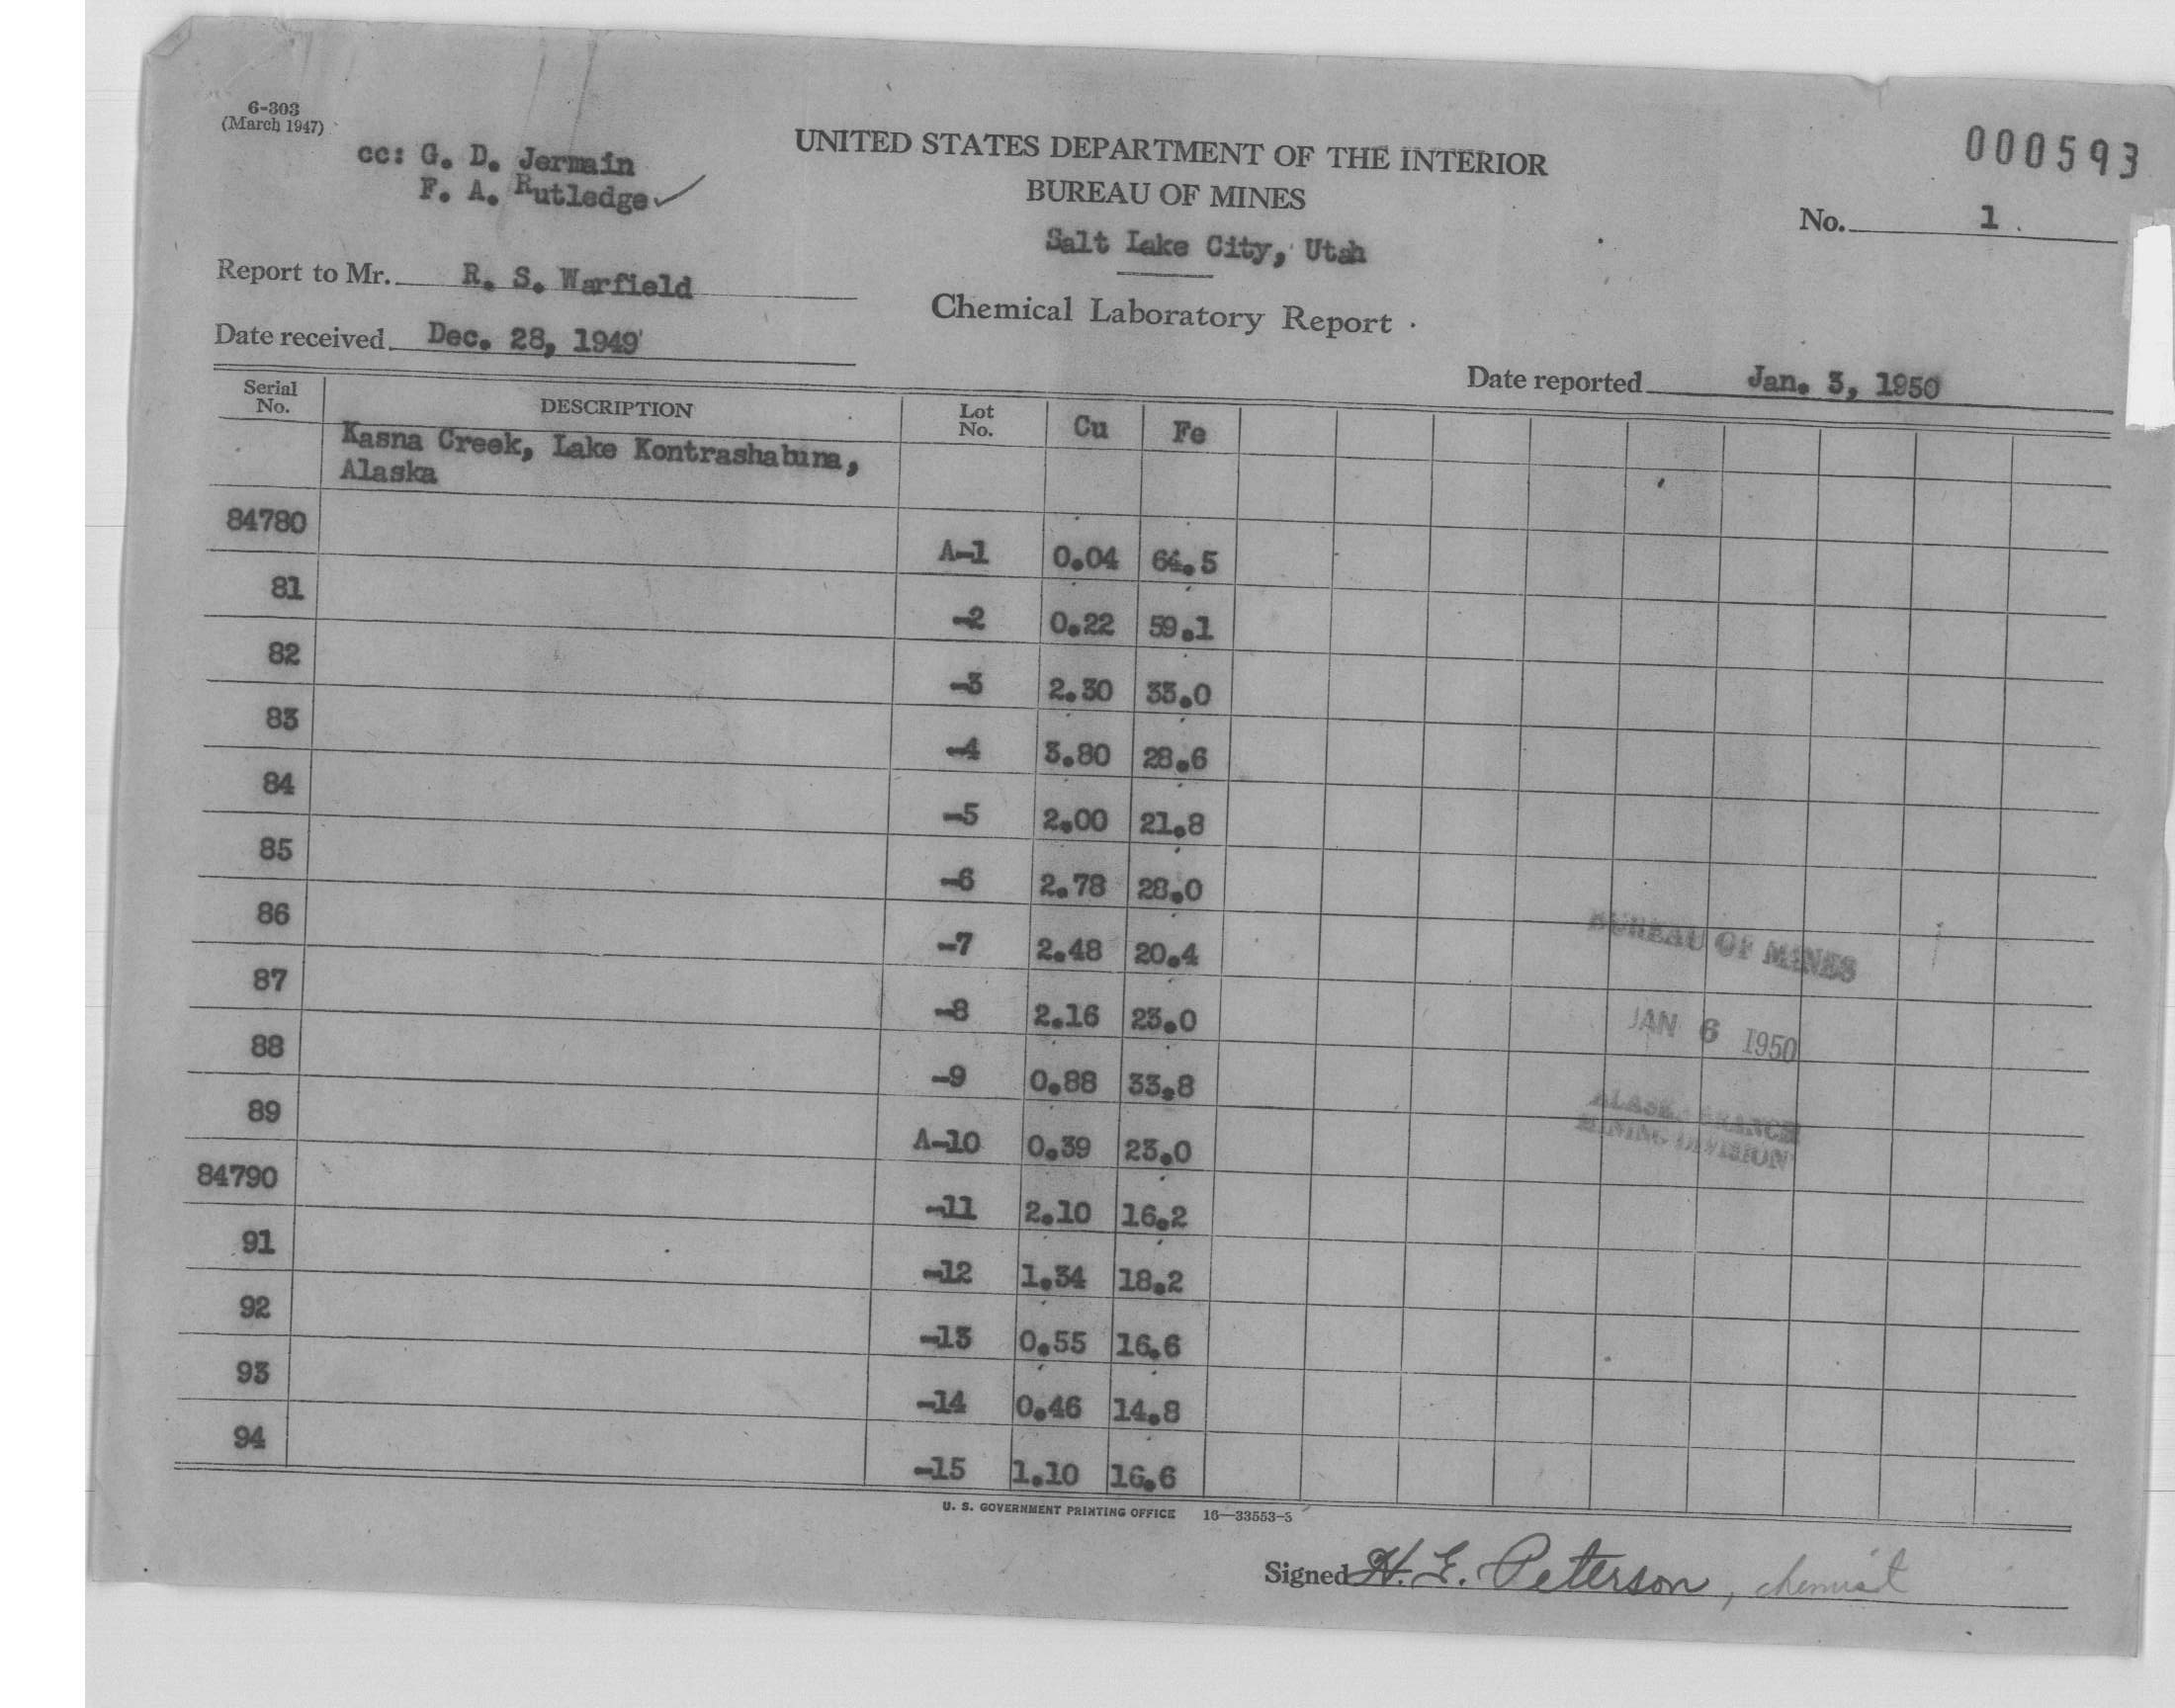 6-303
(March 1947)
cc: G. D. Jermain
F. A. Rutledge ✓
UNITED STATES DEPARTMENT OF THE INTERIOR
BUREAU OF MINES
Salt Lake City, Utah
000593
No. 1
Report to Mr. R. S. Warfield
Chemical Laboratory Report
Date received Dec. 28, 1949
Date reported Jan. 3, 1950
Serial No. DESCRIPTION Lot No. Cu Fe
Kasna Creek, Lake Kontrashabuna,
Alaska
84780 A-1 0.04 64.5
81 -2 0.22 59.1
82 -3 2.30 33.0
83 -4 3.80 28.6
84 -5 2.00 21.8
85 -6 2.78 28.0
86 -7 2.48 20.4
87 -8 2.16 23.0
88 -9 0.88 33.8
89 A-10 0.39 23.0
84790 -11 2.10 16.2
91 -12 1.34 18.2
92 -13 0.55 16.6
93 -14 0.46 14.8
94 -15 1.10 16.6
BUREAU OF MINES
JAN 6 1950
ALASKA BRANCH
MINING DIVISION
U. S. GOVERNMENT PRINTING OFFICE 16—33553-5
Signed H. E. Peterson, chemist